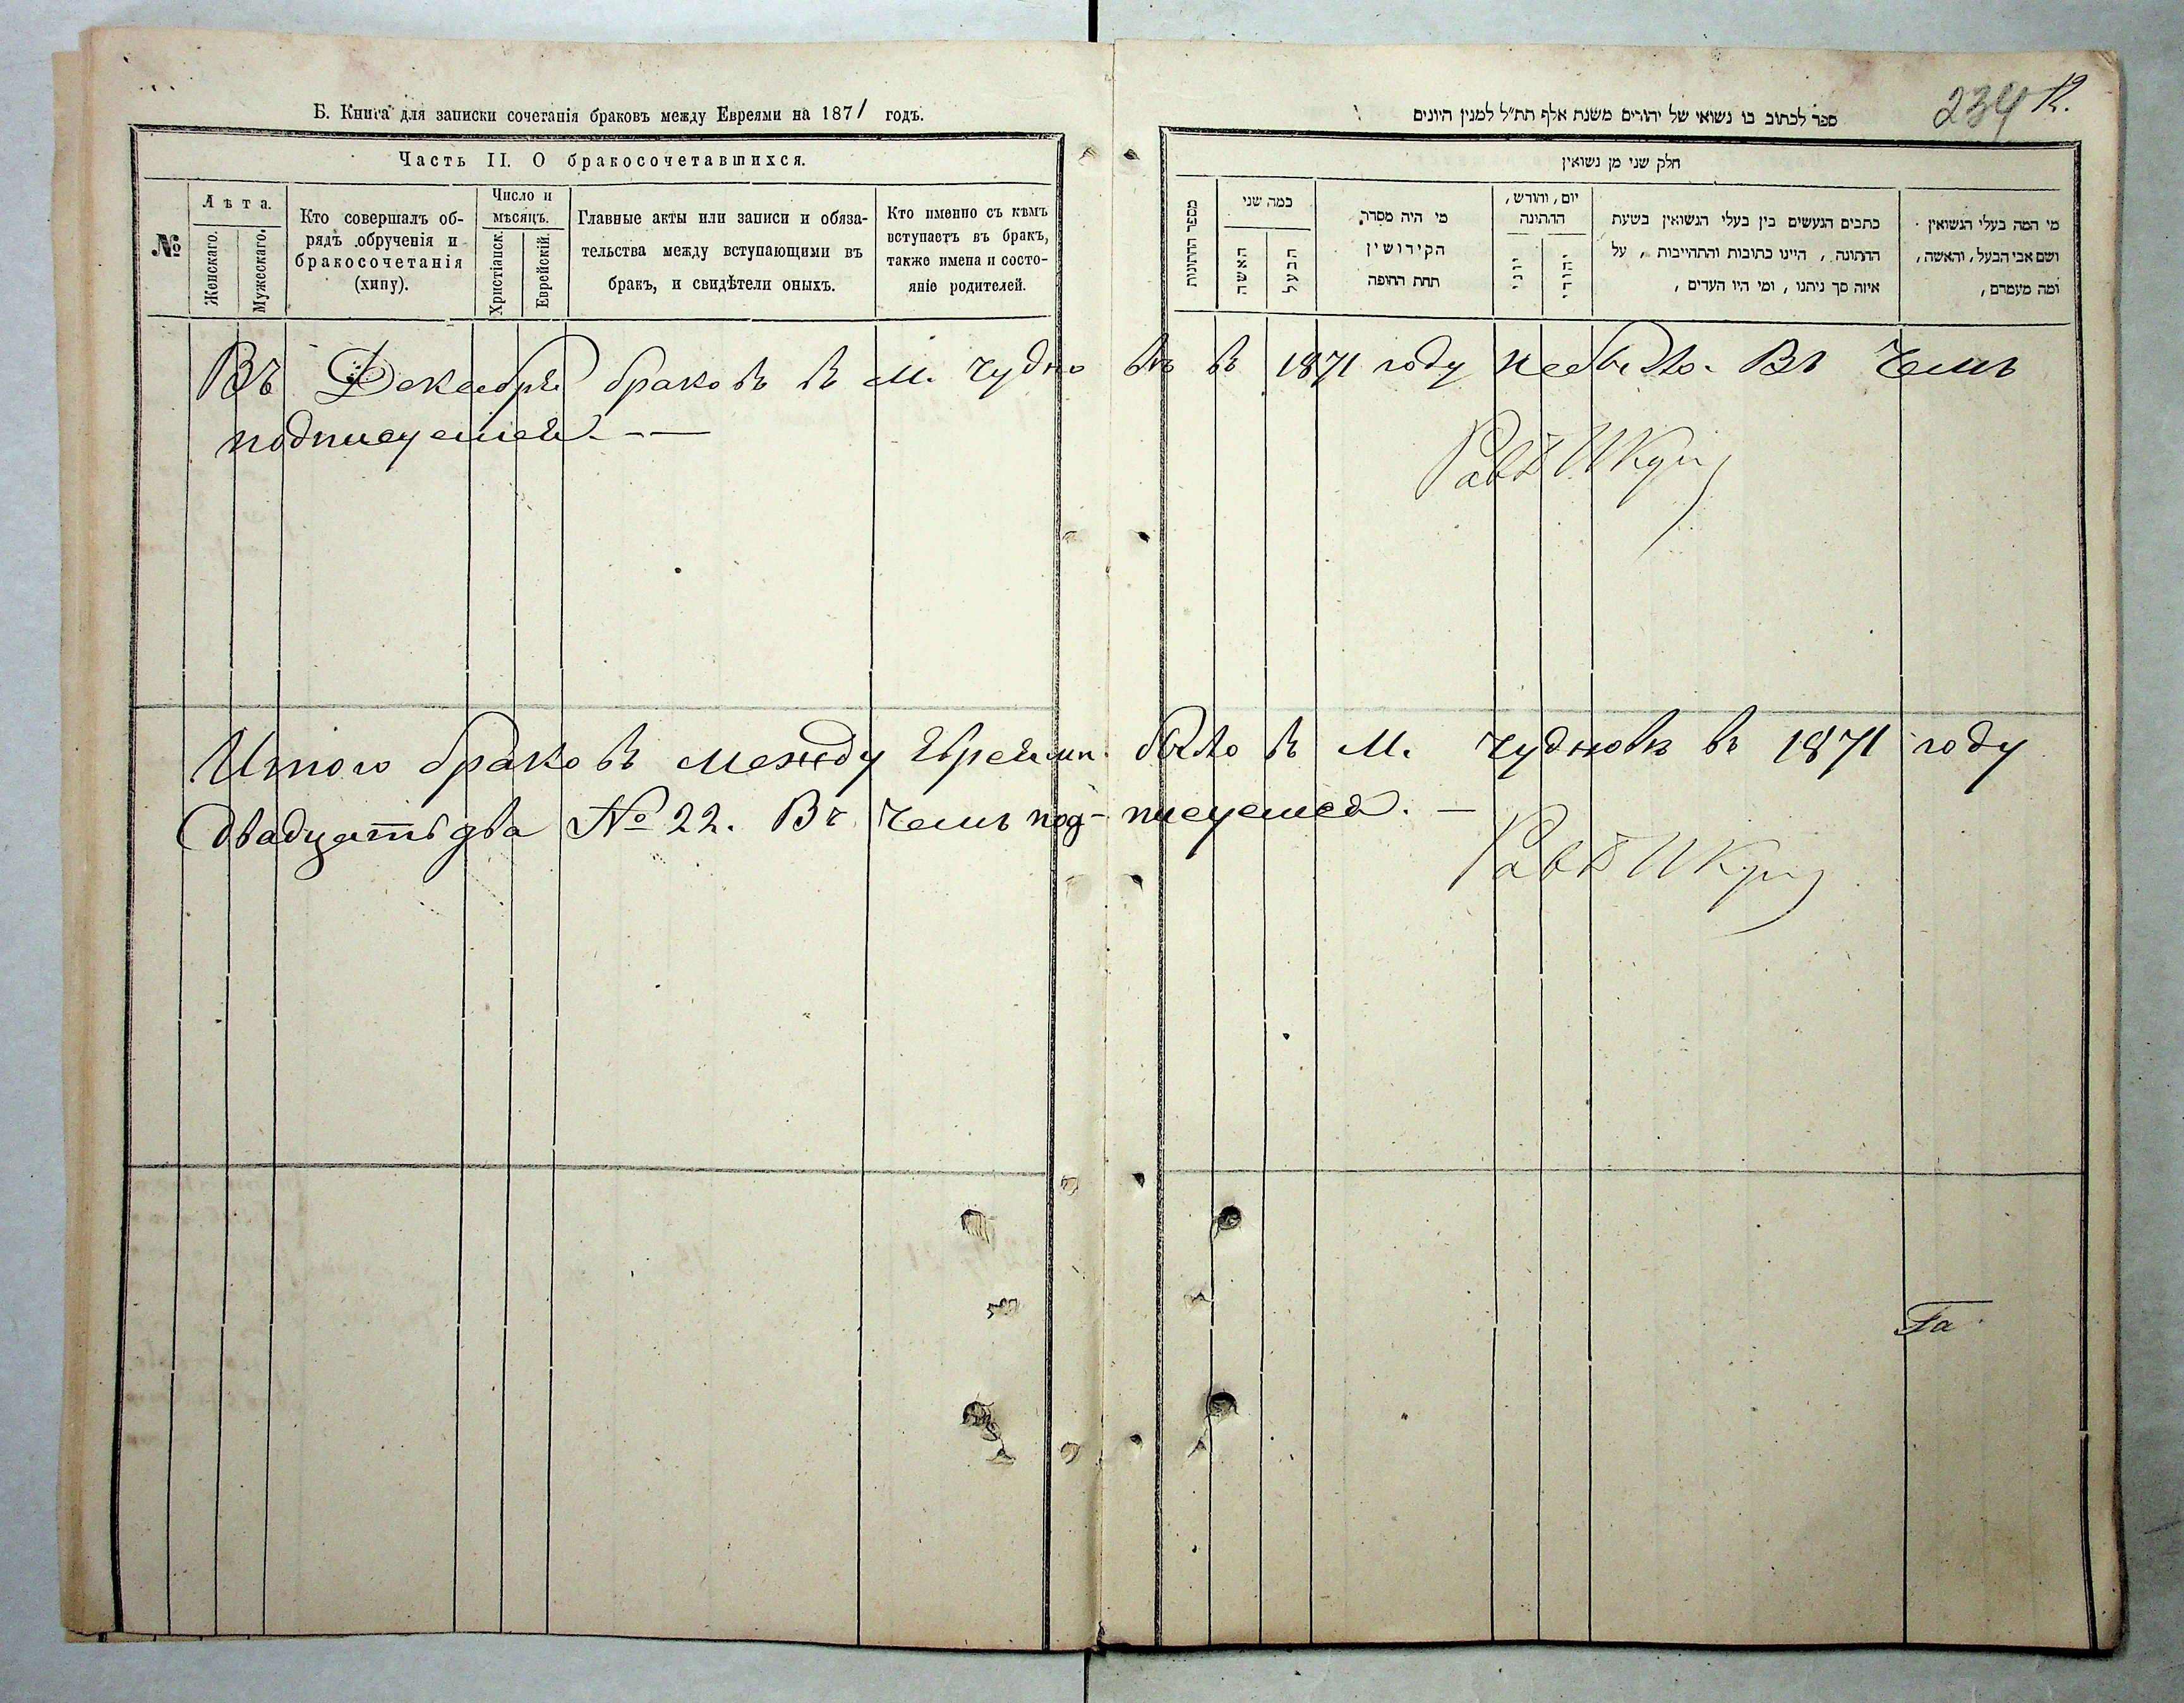 Б. Книга для записки сочетанія браковъ между Евреями на 1871 годъ.
Часть II. О бракосочетавшихся.
№
Лѣта.
Женскаго.
Мужескаго.
Кто совершалъ об-
рядъ обрученія и
бракосочетанія
(хипу).
Число и
мѣсяцъ.
Христіанск.
Еврейскій.
Главные акты или записи и обяза-
тельства между вступающими въ
бракъ, и свидѣтели оныхъ.
Кто именно съ кѣмъ
вступаетъ въ бракъ,
также имена и состо-
яніе родителей.
234 12.
ספר לכתוב בו נשואי של יהודים משנת אלף תת"ל למנין היונים
חלק שני מן נשואין
מי המה בעלי הנשואין
ושם אבי הבעל, והאשה,
ומה מעמדם,
כתבים הנעשים בין בעלי הנשואין בשעת
החתונה, היינו כתובות והתחייבות, על
איזה סך ניתנו, ומי היו העדים,
יום, וחודש,
החתונה
יהודי
יוני
מי היה מסדר
הקידושין
תחת החופה
כמה שני
הבעל
האשה
מספר החתונות
Въ Декабрѣ браковъ въ м. Чудновѣ въ 1871 году небыло. Въ чемъ
подписуемся. — —
Итого браковъ между Евреями было въ м. Чудновѣ въ 1871 году
двадцать два № 22. Въ чемъ под-писуемся. —
Га